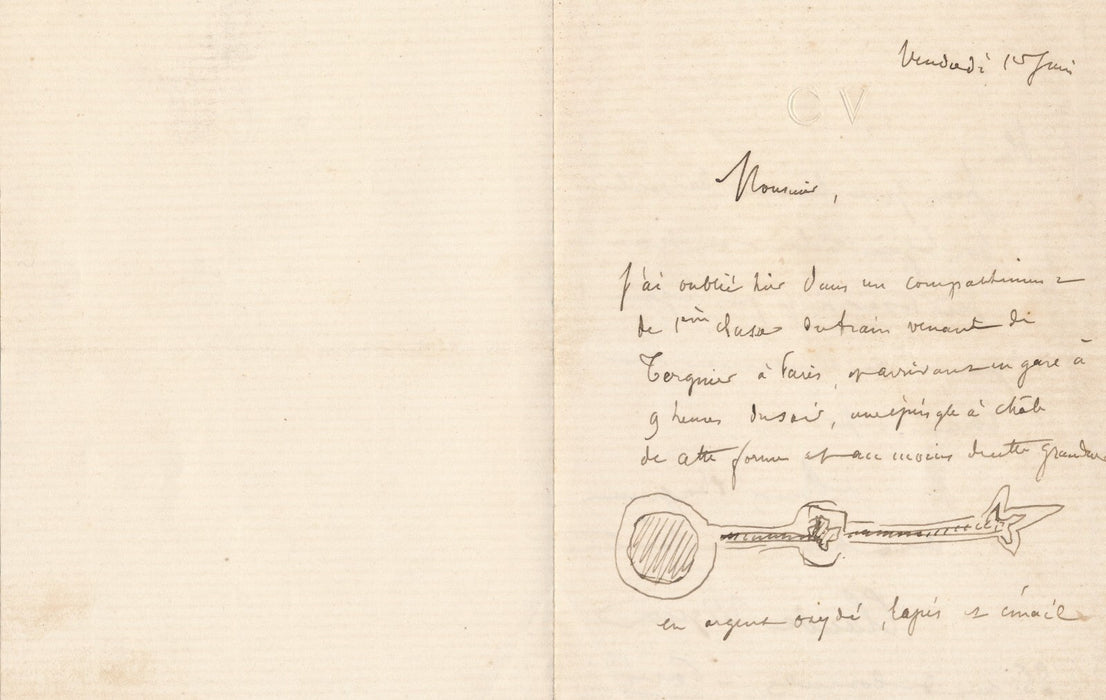 Vendredi 15 Juin
CV
Monsieur,
J'ai oublié hier dans un compartiment
de 1ère classe du train venant de
Tergnier à Paris, et arrivant en gare à
9 heures du soir, une épingle à châle
de cette forme et au moins de cette grandeur
en argent oxydé, lapis et émail